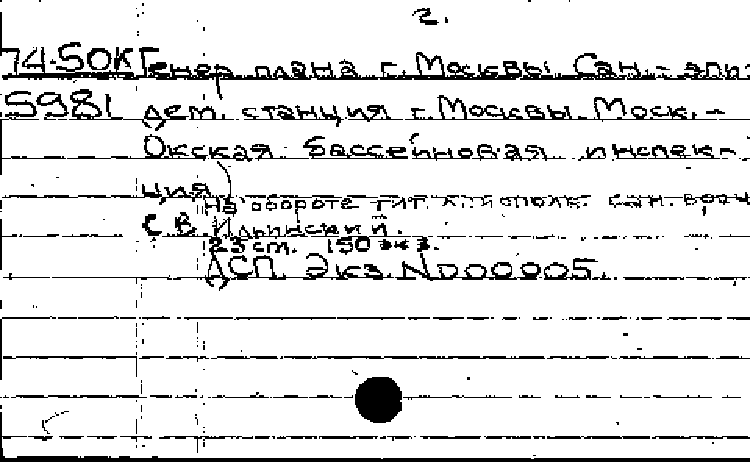 2.
74-50К Генер. плана г. Москвы. Сан.- эпи
5981 дем. станция г. Москвы. Моск.-
Окская бассейновая инспек-
ция
На обороте тит. л.: исполн. сан. врач
С.В. Ильинский.
23 см. 150 экз.
ДСП. Экз. №00005.